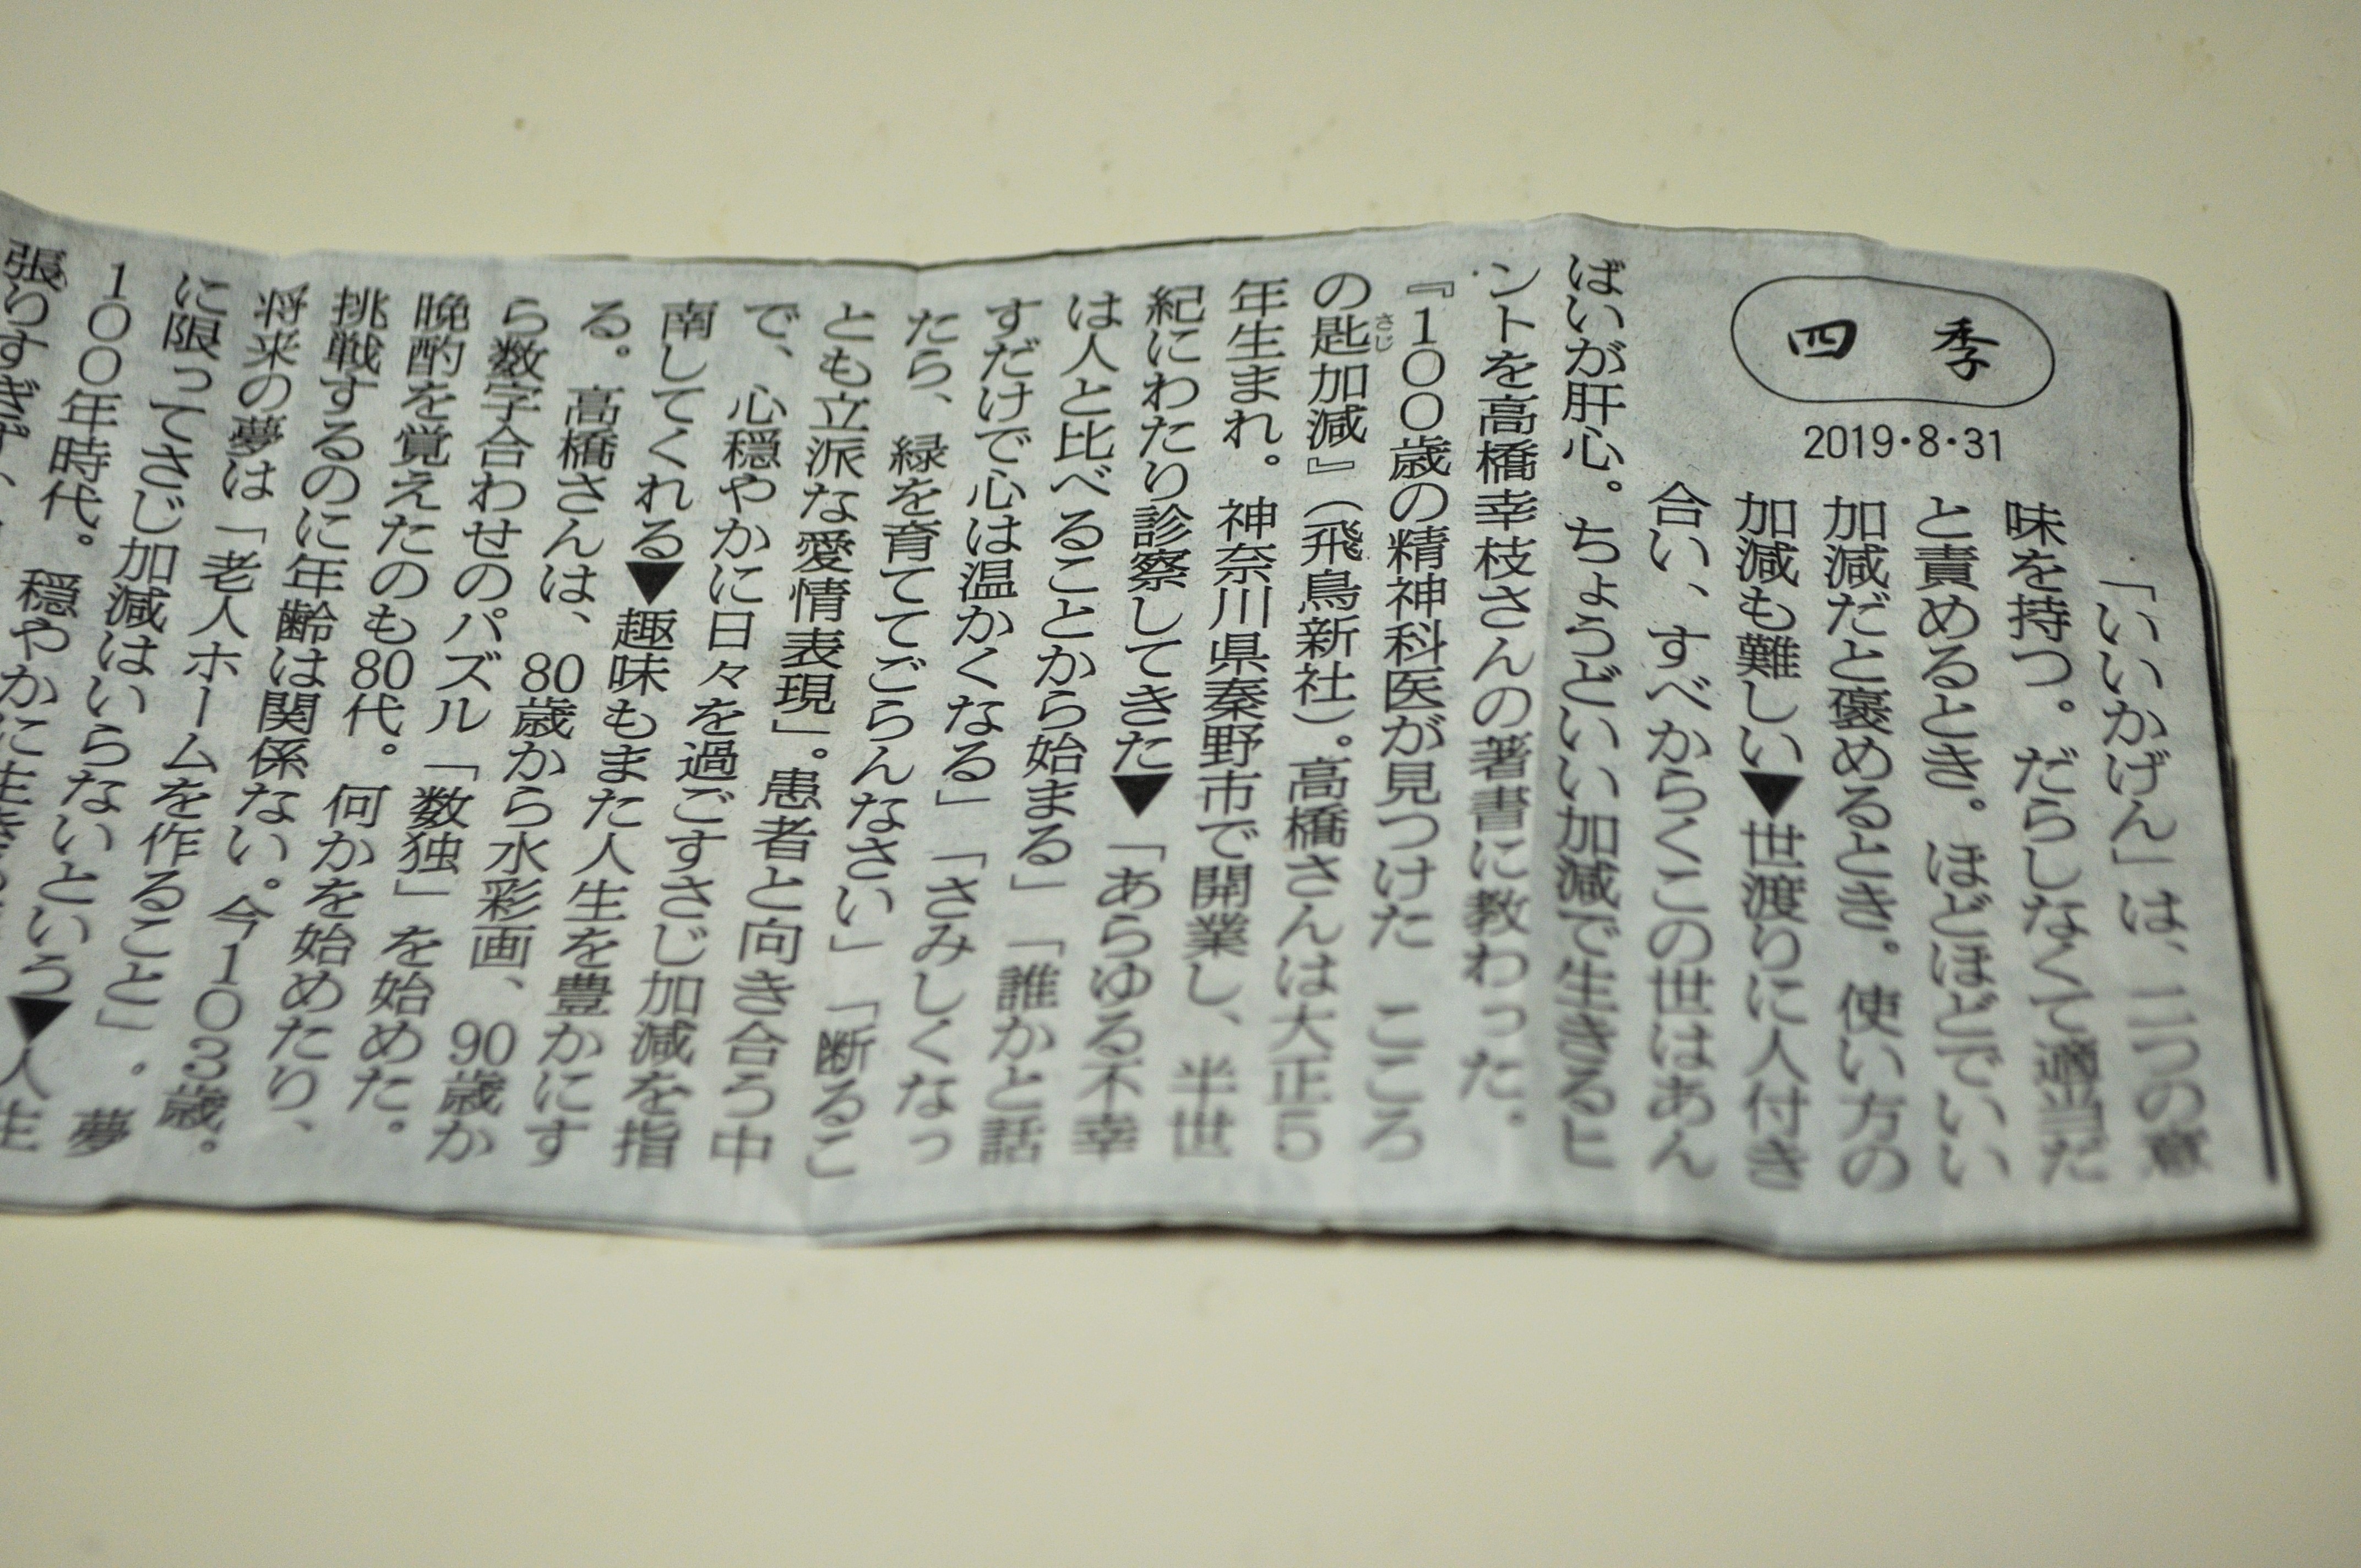 四季
2019・8・31
「いいかげん」は、二つの意
味を持つ。だらしなくて適当だ
と責めるとき。ほどほどでいい
加減だと褒めるとき。使い方の
加減も難しい▼世渡りに人付き
合い、すべからくこの世はあん
ばいが肝心。ちょうどいい加減で生きるヒ
ントを高橋幸枝さんの著書に教わった。
『100歳の精神科医が見つけた こころ
の匙加減』(飛鳥新社)。高橋さんは大正5
さじ
年生まれ。神奈川県秦野市で開業し、半世
紀にわたり診察してきた▼「あらゆる不幸
は人と比べることから始まる」「誰かと話
すだけで心は温かくなる」「さみしくなっ
たら、緑を育ててごらんなさい」「断るこ
とも立派な愛情表現」。患者と向き合う中
で、心穏やかに日々を過ごすさじ加減を指
南してくれる▼趣味もまた人生を豊かにす
る。高橋さんは、80歳から水彩画、90歳か
ら数字合わせのパズル「数独」を始めた。
晩酌を覚えたのも80代。何かを始めたり、
挑戦するのに年齢は関係ない。今103歳。
将来の夢は「老人ホームを作ること」。夢
に限ってさじ加減はいらないという▼人生
100年時代。穏やかに生き
張りすぎず、